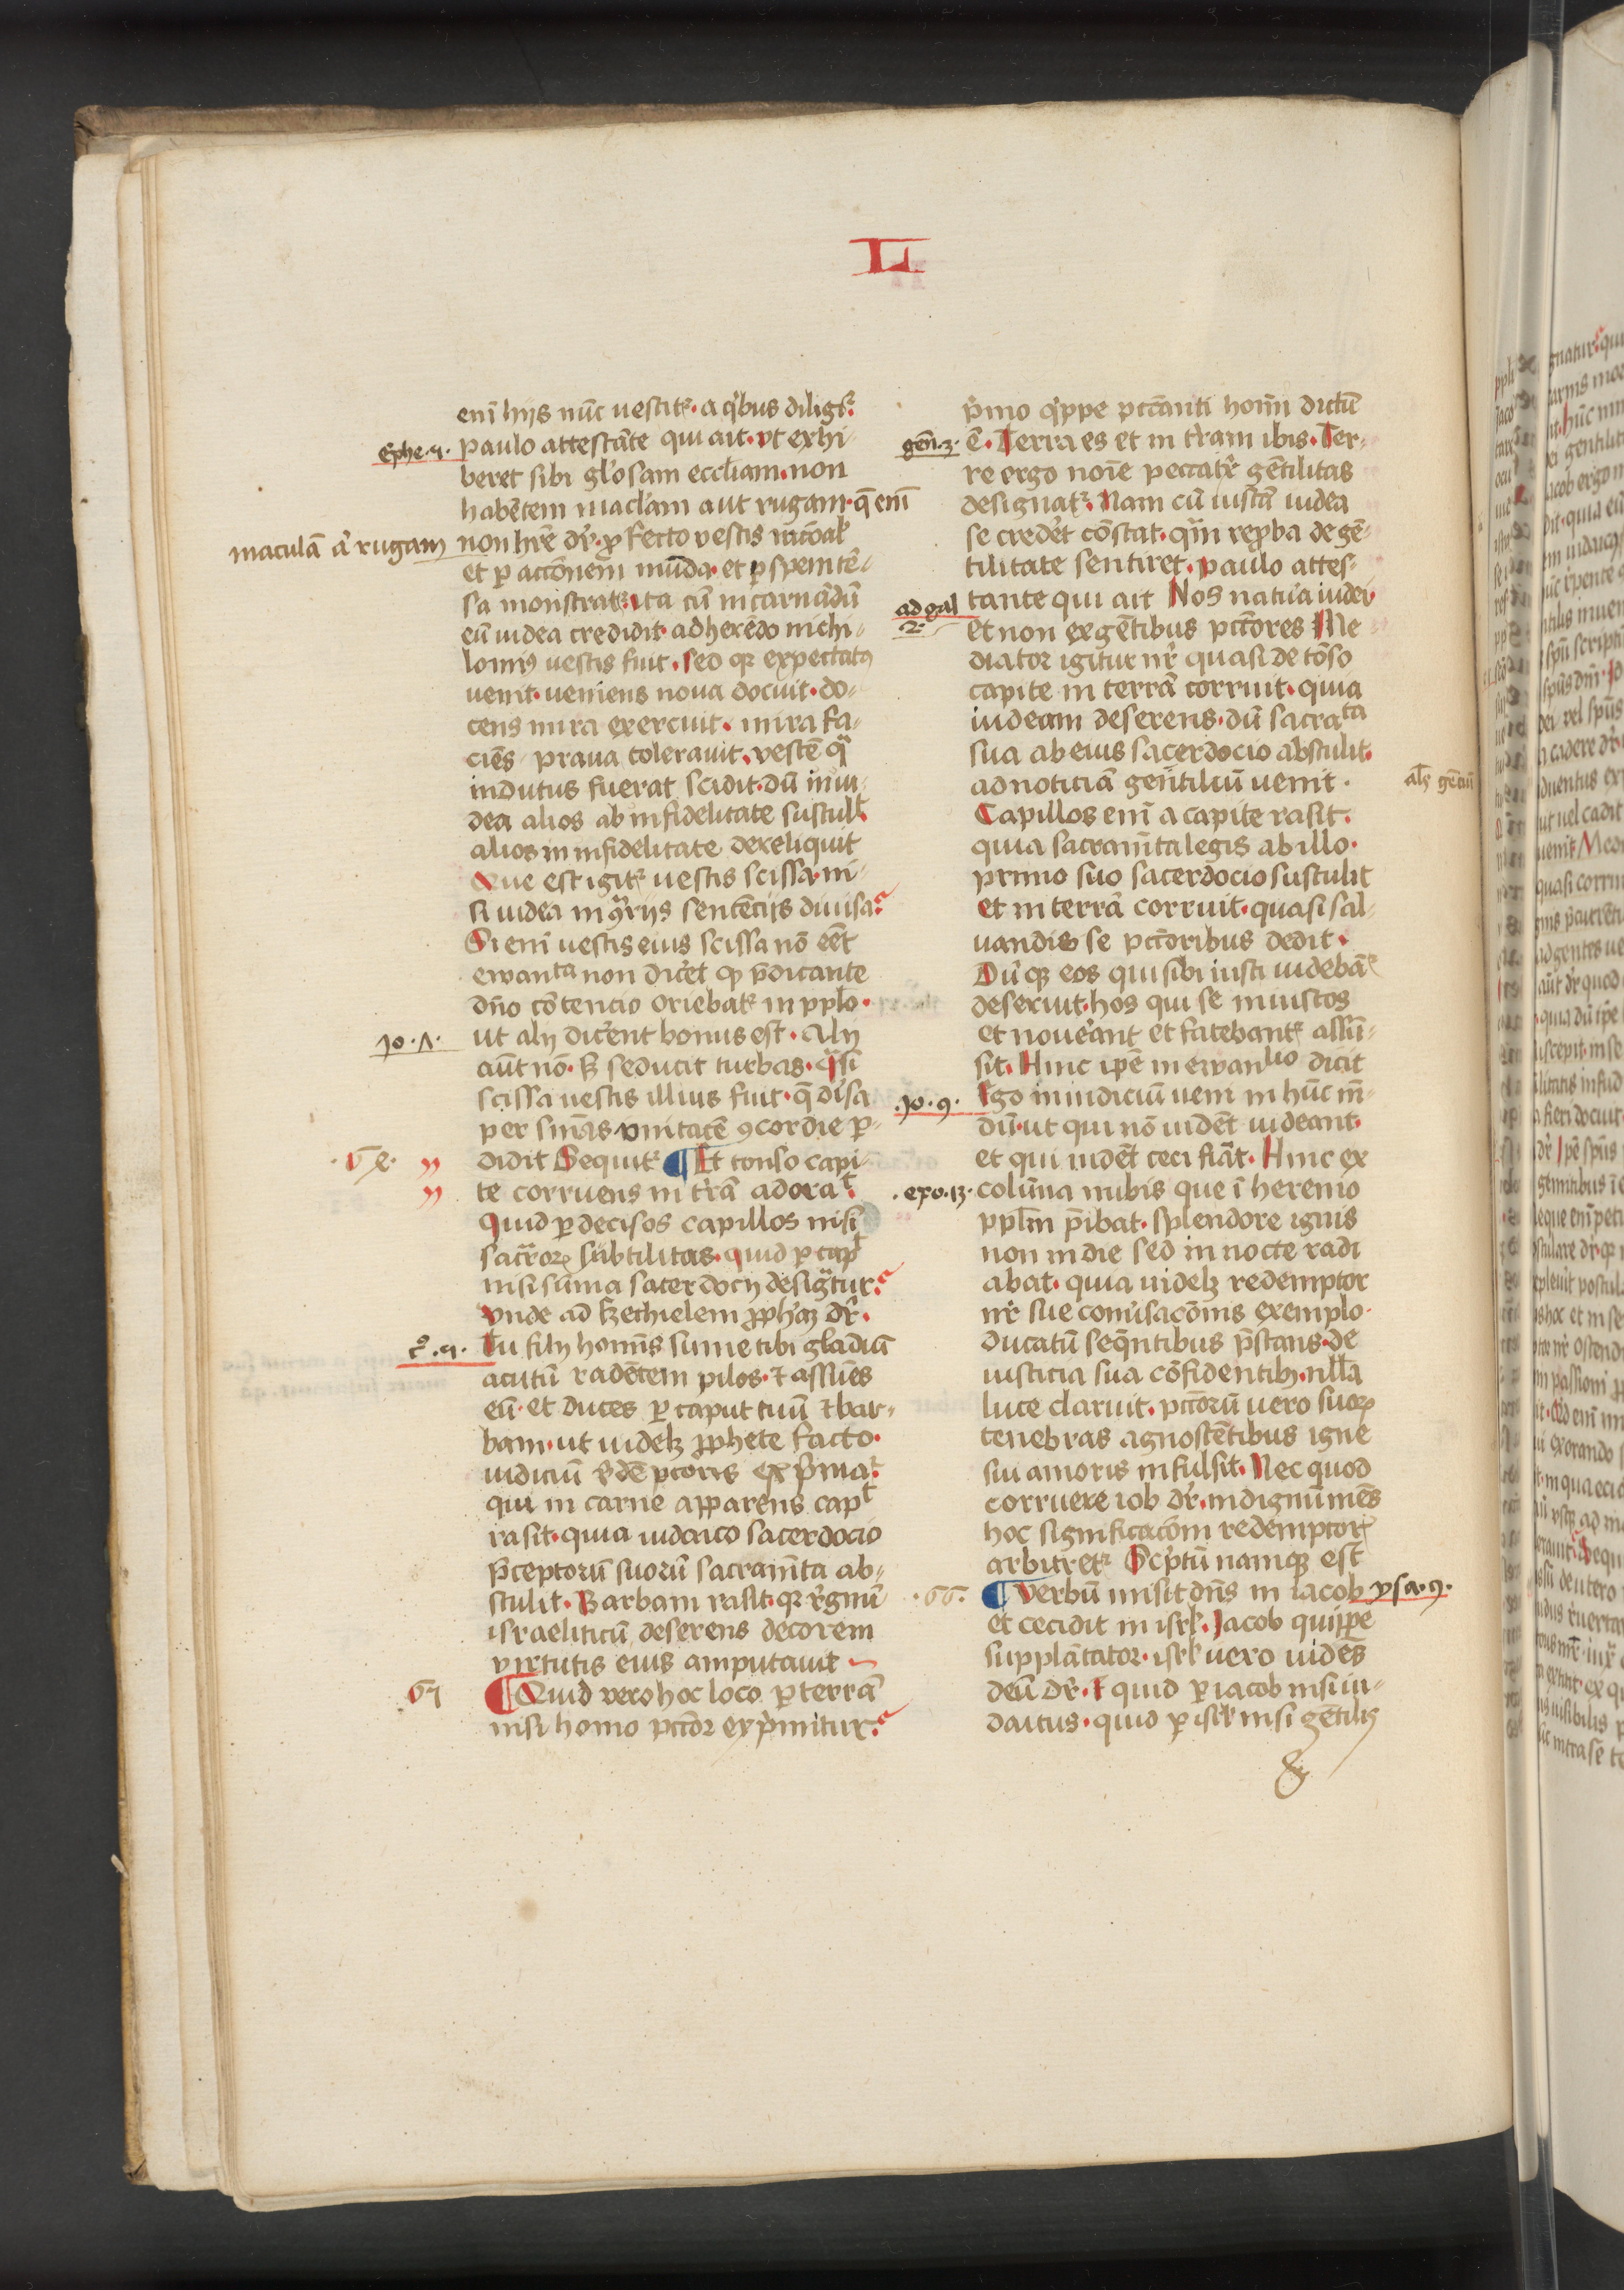 L
enī hijs nūc uestitr a qͥbus diligr̄
Ephe.4.
paulo attestāte qui ait. vt exhi-
beret sibi gl'osam eccl'iam. non
habētem macl'am aut rugam. que eni
maculā ā rugam
non hr̄e dr̄. profecto vestis rac̄oal'
et per acc̄onem mūda. et per spem tēr-
sa monstratr. ita cū incarnādū
eū iudea credidit. adherēdo nichi-
lomiꝰ uestis fuit. sed qr expectatꝰ
uenit. ueniens noua docuit. do-
cens mira exercuit. mira fa-
ciēs praua tolerauit. vestē qua
indutus fuerat scidit. dū in iu-
dea alios ab infidelitate sustul't
alios in infidelitate dereliquit
Que est igitr uestis scissa. ni-
si iudea in ꝯͣrijs sentēcijs diuisa
Si enī uestis eius scissa nō eēt
ewanta non dic̄et ꝙ p̄dicante
dn̄o cōtencio oriebatr in ppl'o.
Jo.7.
ut alij dic̄ent bonus est. Alij
aūt nō. sed seducit turbas. quasi
scissa uestis illius fuit. que disa
per sn̄ias vnitatē ꝯcordie per-
.65.
didit Sequitr ¶ Et tonso capi-
te corruens in tr̄ā adorat.
Quid per decisos capillos nisi
sacr̄oꝝ subtilitas. quid per capt
nisi sūma sacerdocij designatur
vnde ad Ezechielem ꝓph'aꝫ dr̄.
c̊.4.
Tu fili homīs sume tibi gladiū
acutū radētem pilos. et assūes
eū. et duces per caput tuū et bar-
bam. ut uidelꝫ ꝓphete facto.
iudiciū r̄dēptoris exp̄mar
qui in carne apparens capt
rasit. quia iudaico sacerdocio
p̄ceptorū suorū sacramn̄ta ab-
stulit. Barbam rasit. qr r̄gnū
israeliticū deserens decorem
virtutis eius amputauit
67
¶ Quid vero hoc loco per terrā
nisi homo pc̄cor exp̄mitur.
p̄mo qͥppe pccanti homī dictū
gen̄.3.
ē. Terra es et in tr̄am ibis. Ter-
re ergo noīe peccatr̄ gētilitas
designatr. Nam cū iustā iudea
se cred'et cōstat. quam reproba de gē-
tilitate sentiret. paulo attes-
ad gal
2.
tante qui ait Nos natura iudei
et non ex gētibus pccores Me
diator igitur nr̄ quasi detōso
capite in terrā corruit. quia
iudeam deserens. dū sacrata
sua ab eius sacerdocio abstulit.
ad noticiā gentiliū uenit.
al's gēciū
Capillos enī a capite rasit.
quia sacramn̄ta legis ab illo.
primo suo sacerdocio sustulit
et in terrā corruit. quasi sal-
uandis se pccoribus dedit.
Dūqꝫ eos qui sibi iusti uidebātr
deseruit. hos qui se iniustos
et nouerant et fatebantr assū-
sit. Hinc ipē in ewanlio dicit
.Jo.9.
Ego in iudiciū ueni in hūc m-
dū. ut qui nō uidēt uideant.
et qui uidēt ceci fiāt. Hinc ex
.exo.13.
colūna nubis que ī heremo
ppl'm p̄ibat. splendore ignis
non in die sed in nocte radi
abat. quia uidelꝫ redemptor
nr̄ sue conūsac̄onis exemplo.
ducatū sequentibus p̄stans. de
iusticia sua cōfidentibꝫ. nulla
luce claruit. pccorū uero suoꝝ
tenebras agnoscētibus igne
sui amoris infulsit. Nec quod
corruere iob dr̄. indignū mēs
hoc significac̄om redemptoris
arbitretr Scp̄tū namqꝫ est
.66.
¶ Verbū misit dn̄s in iacob
psa.9.
et cecidit in isrl'. Jacob quippe
supplātator. isrl' uero uides
deū dr̄. Et quid per iacob nisi iu-
daicus. quid per isrl' nisi gētilis